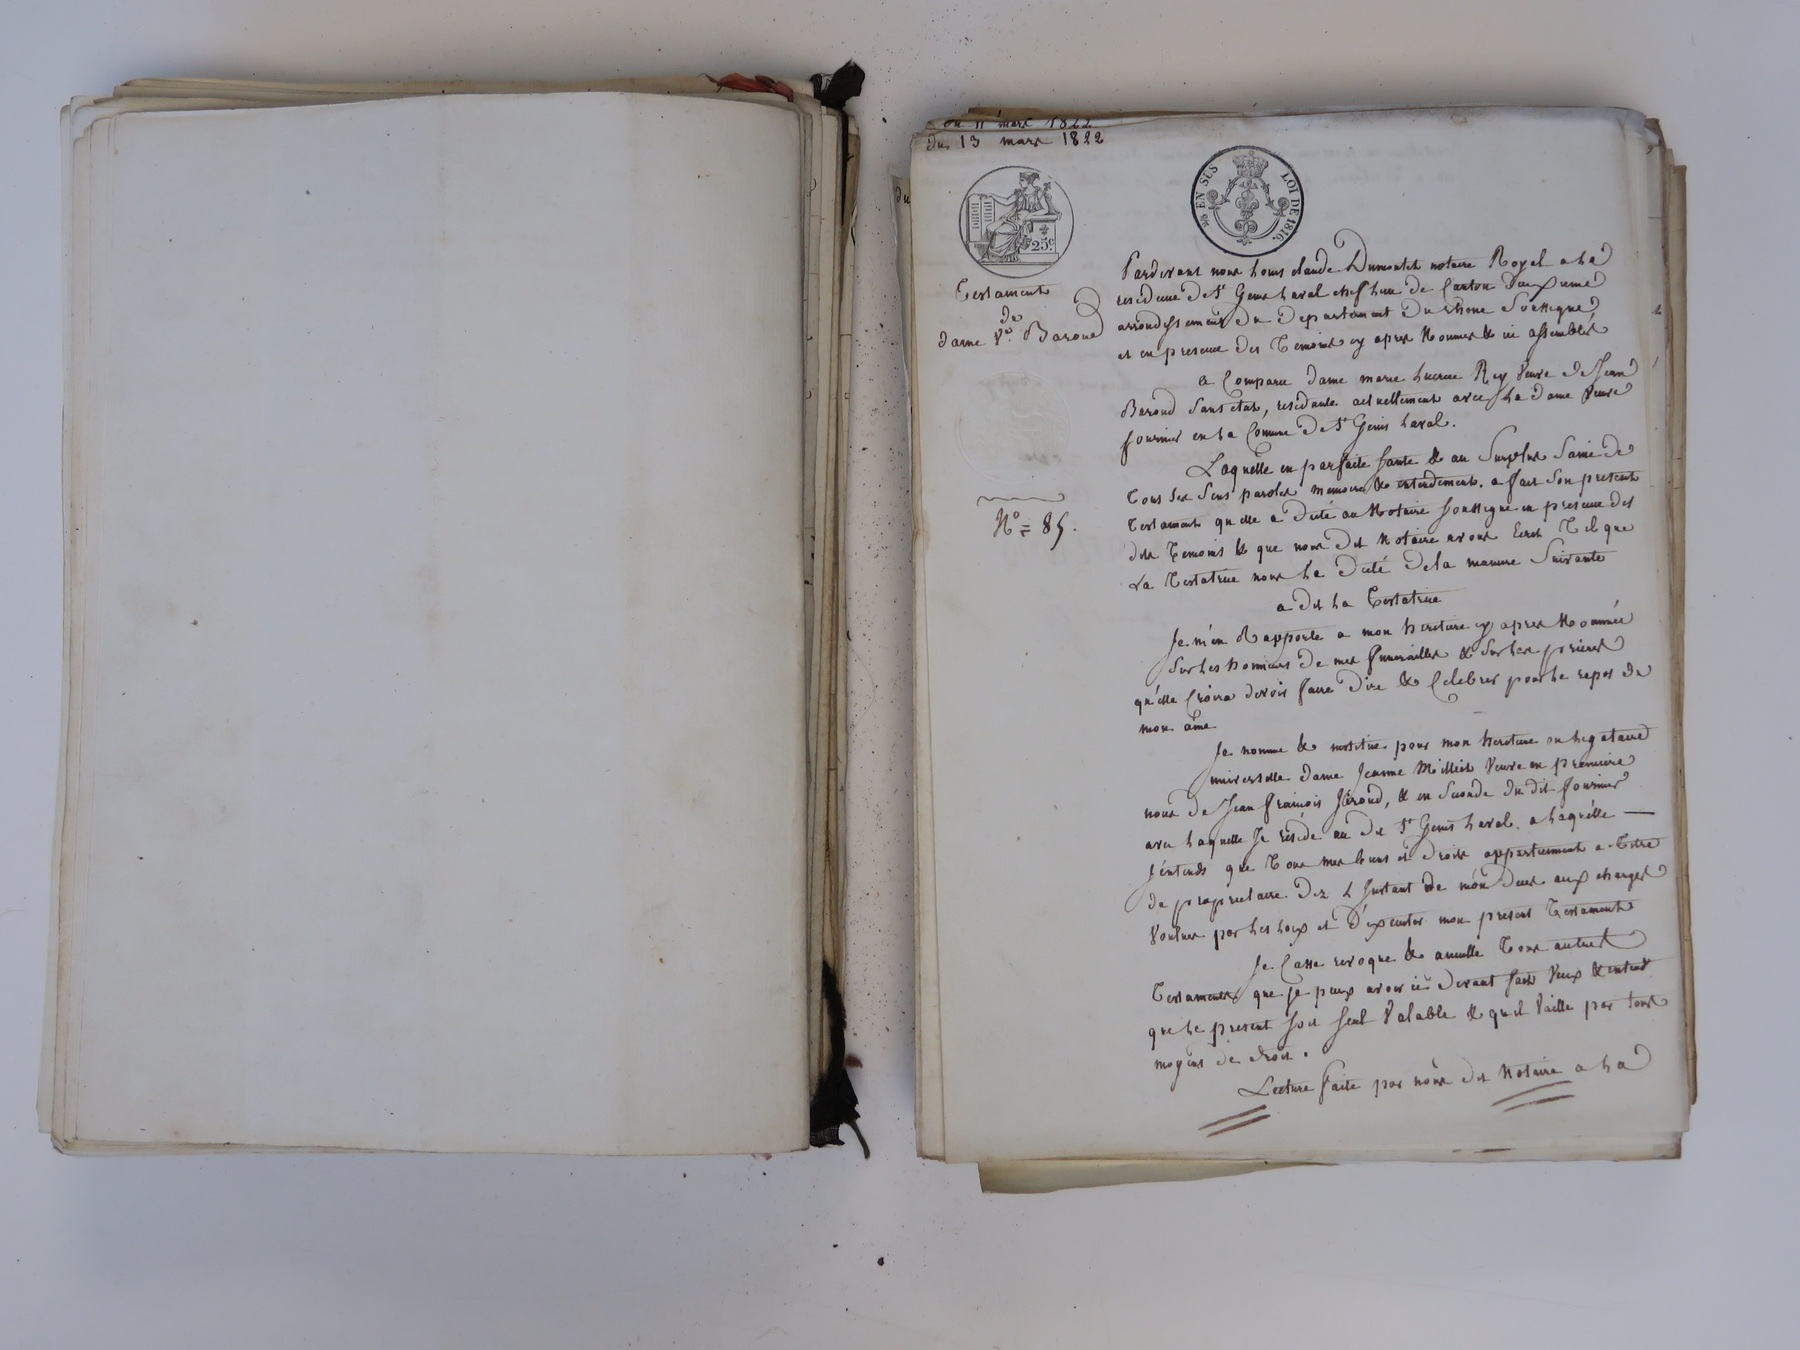 du 11 mars 1822
du 13 mars 1822
EN SUS LOI DE 1816.
25c
Testament
de
dame Ve. Baroud
No = 85.
Pardevant nous Louis claude Dumortet notaire Royal a la
residence de St Genis Laval chef lieu de Canton deuxieme
arrondissement du Departement du Rhone Soussigné
et en presence des Temoins cy apres Nommés & ici assemblés
a Comparu dame marie Lucrece Rey Veuve de Jean
Baroud Sans etat, residante actuellement avec la dame Veuve
fournier en la Comune de St Genis Laval.
Laquelle en parfaite Santé & au Surplus Saine de
Tous ses Sens paroles memoire & entendement. a fait Son present
Testament qu elle a dicté au Notaire soussigné en presence des
dits Temoins & que nous dit Notaire avons Ecrit Tel que
La Testatrice nous l'a dicté de la maniere Suivante
a dit La Testatrice
Je m'en Rapporte a mon heritiere cy apres Nommée
Sur les honneurs de mes funerailles & Sur les prieres
qu'elle Croira devoir faire dire & Celebrer pour le repos de
mon âme
Je nomme & institue pour mon heritiere ou legataire
universelle dame Jeanne Milliet Veuve en premiere
nous de Jean françois Jéroud, & en Seconde du dit fournier
avec laquelle Je reside au dit St Genis Laval. a laquelle
J'entends que Tous mes biens et droits appartiennent a Titre
de proprietaire dez L Instant de mon deces aux charges
Voulues par les loix et d'executer mon present Testament
Je Casse revoque & annulle Tous autres
Testaments que je peux avoir ci devant fait Veux & entend
que le present soit seul Valable & qu il Vaille par tous
moyens de droit.
Lecture faite par nous dit Notaire a la